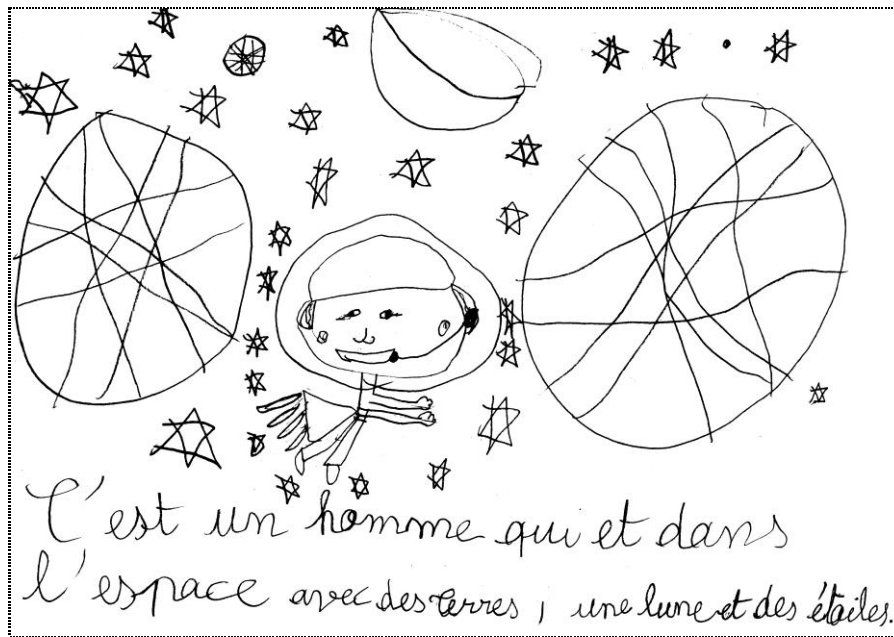 C'est un homme qui et dans
l'espace avec des terres, une lune et des étoiles.